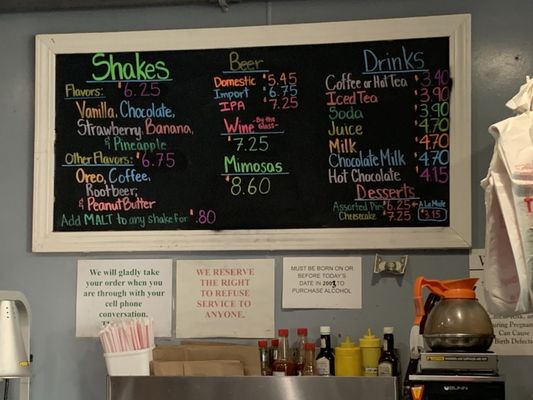 Shakes
Flavors: $6.25
Vanilla, Chocolate,
Strawberry, Banana,
& Pineapple
Other Flavors: $6.75
Oreo, Coffee,
Rootbeer,
& Peanut Butter
Add MALT to any shake for $.80
Beer
Domestic $5.45
Import $6.75
IPA $7.25
Wine -By the glass-
$7.25
Mimosas
$8.60
Drinks
Coffee or Hot Tea $3.40
Iced Tea $3.90
Soda $3.90
Juice $4.70
Milk $4.70
Chocolate Milk $4.70
Hot Chocolate $4.15
Desserts
Assorted Pie $6.25
Cheesecake $7.25
A La Mode
$3.15
We will gladly take
your order when you
are through with your
cell phone
conversation.
WE RESERVE
THE RIGHT TO
REFUSE
SERVICE TO
ANYONE.
MUST BE BORN ON OR
BEFORE TODAY'S
DATE IN 2003 TO
PURCHASE ALCOHOL
Birth Defects
BUNN